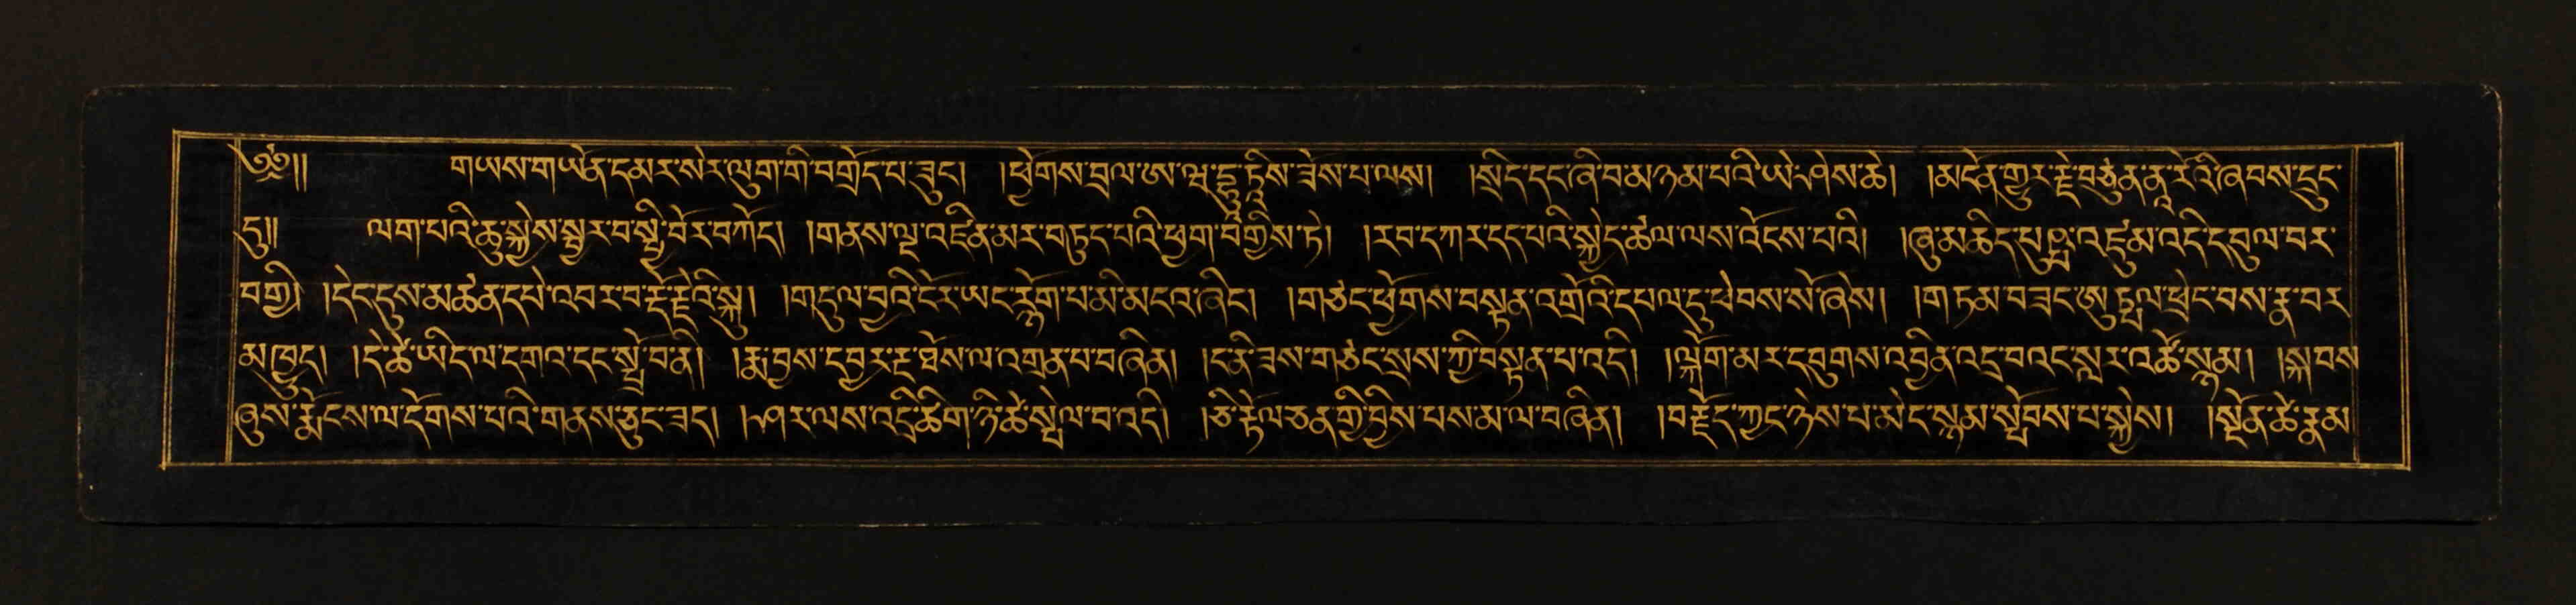 ༄༅།། གཡས་གཡོན་དམར་སེར་ལུག་གི་བགྲོད་པ་ཟུང། །ཕྱོགས་བྲལ་ཨ་ཝ་དྷཱུ་ཏཱིས་ཟོས་པ་ལས། །སྲིད་དང་ཞི་བ་མཉམ་པའི་ཡེ་ཤེས་ཆེ། །མངོན་གྱུར་རྗེ་བཙུན་ནཱ་རོའི་ཞབས་དྲུང་
དུ།། ལག་པའི་ཆུ་སྐྱེས་སྦྱར་བ་སྤྱི་བོར་བཀོད། །གནས་ལྔ་འཛིན་མར་བཏུད་པའི་ཕྱག་བགྱིས་ཏེ། །རབ་དཀར་དད་པའི་སྐྱེད་ཚལ་ལས་འོངས་པའི། །ཞུ་མཆིད་པུཥྤ་འཛུམ་འདི་དབུལ་བར་
བགྱི། །དེང་དུས་མཚན་དཔེ་འབར་བ་རྡོ་རྗེའི་སྐུ། །གདུལ་བྱའི་ངོར་ཡང་རྙོག་པ་མི་མངའ་ཞིང། །གཙང་ཕྱོགས་བསྟན་འགྲོའི་དཔལ་དུ་ཕེབས་སོ་ཞེས། །གཏམ་བཟང་ཨུཏྤལ་ཕྲེང་བས་རྣ་བར
མཁྱུད། །དེ་ཚེ་ཡིད་ལ་དགའ་དང་སྤྲོ་བ་ནི། །རྨ་བྱས་དབྱར་རྔ་ཐོས་ལ་འགྲན་པ་བཞིན། །ད་ནི་ཟས་གཙང་སྲས་ཀྱི་བསྟན་པ་འདི། །ལྐོག་མར་དབུགས་འབྱིན་འདྲ་བའང་སླར་འཚོ་སྙམ། །སྐབས
ཞུས་རྨོངས་ལ་དོགས་པའི་གནས་ཅུང་ཟད། །ཤར་ལས་འདྲི་ཚིག་ཉི་ཚེ་སྤེལ་བ་འདི། །ཅི་རྟོལ་ཅན་གྱི་བྱིས་པས་མ་ལ་བཞིན། །བརྗོད་ཀྱང་ཉེས་པ་མེད་སྙམ་སྤོབས་པ་སྐྱེས། །སྔོན་ཚེ་རྣམ